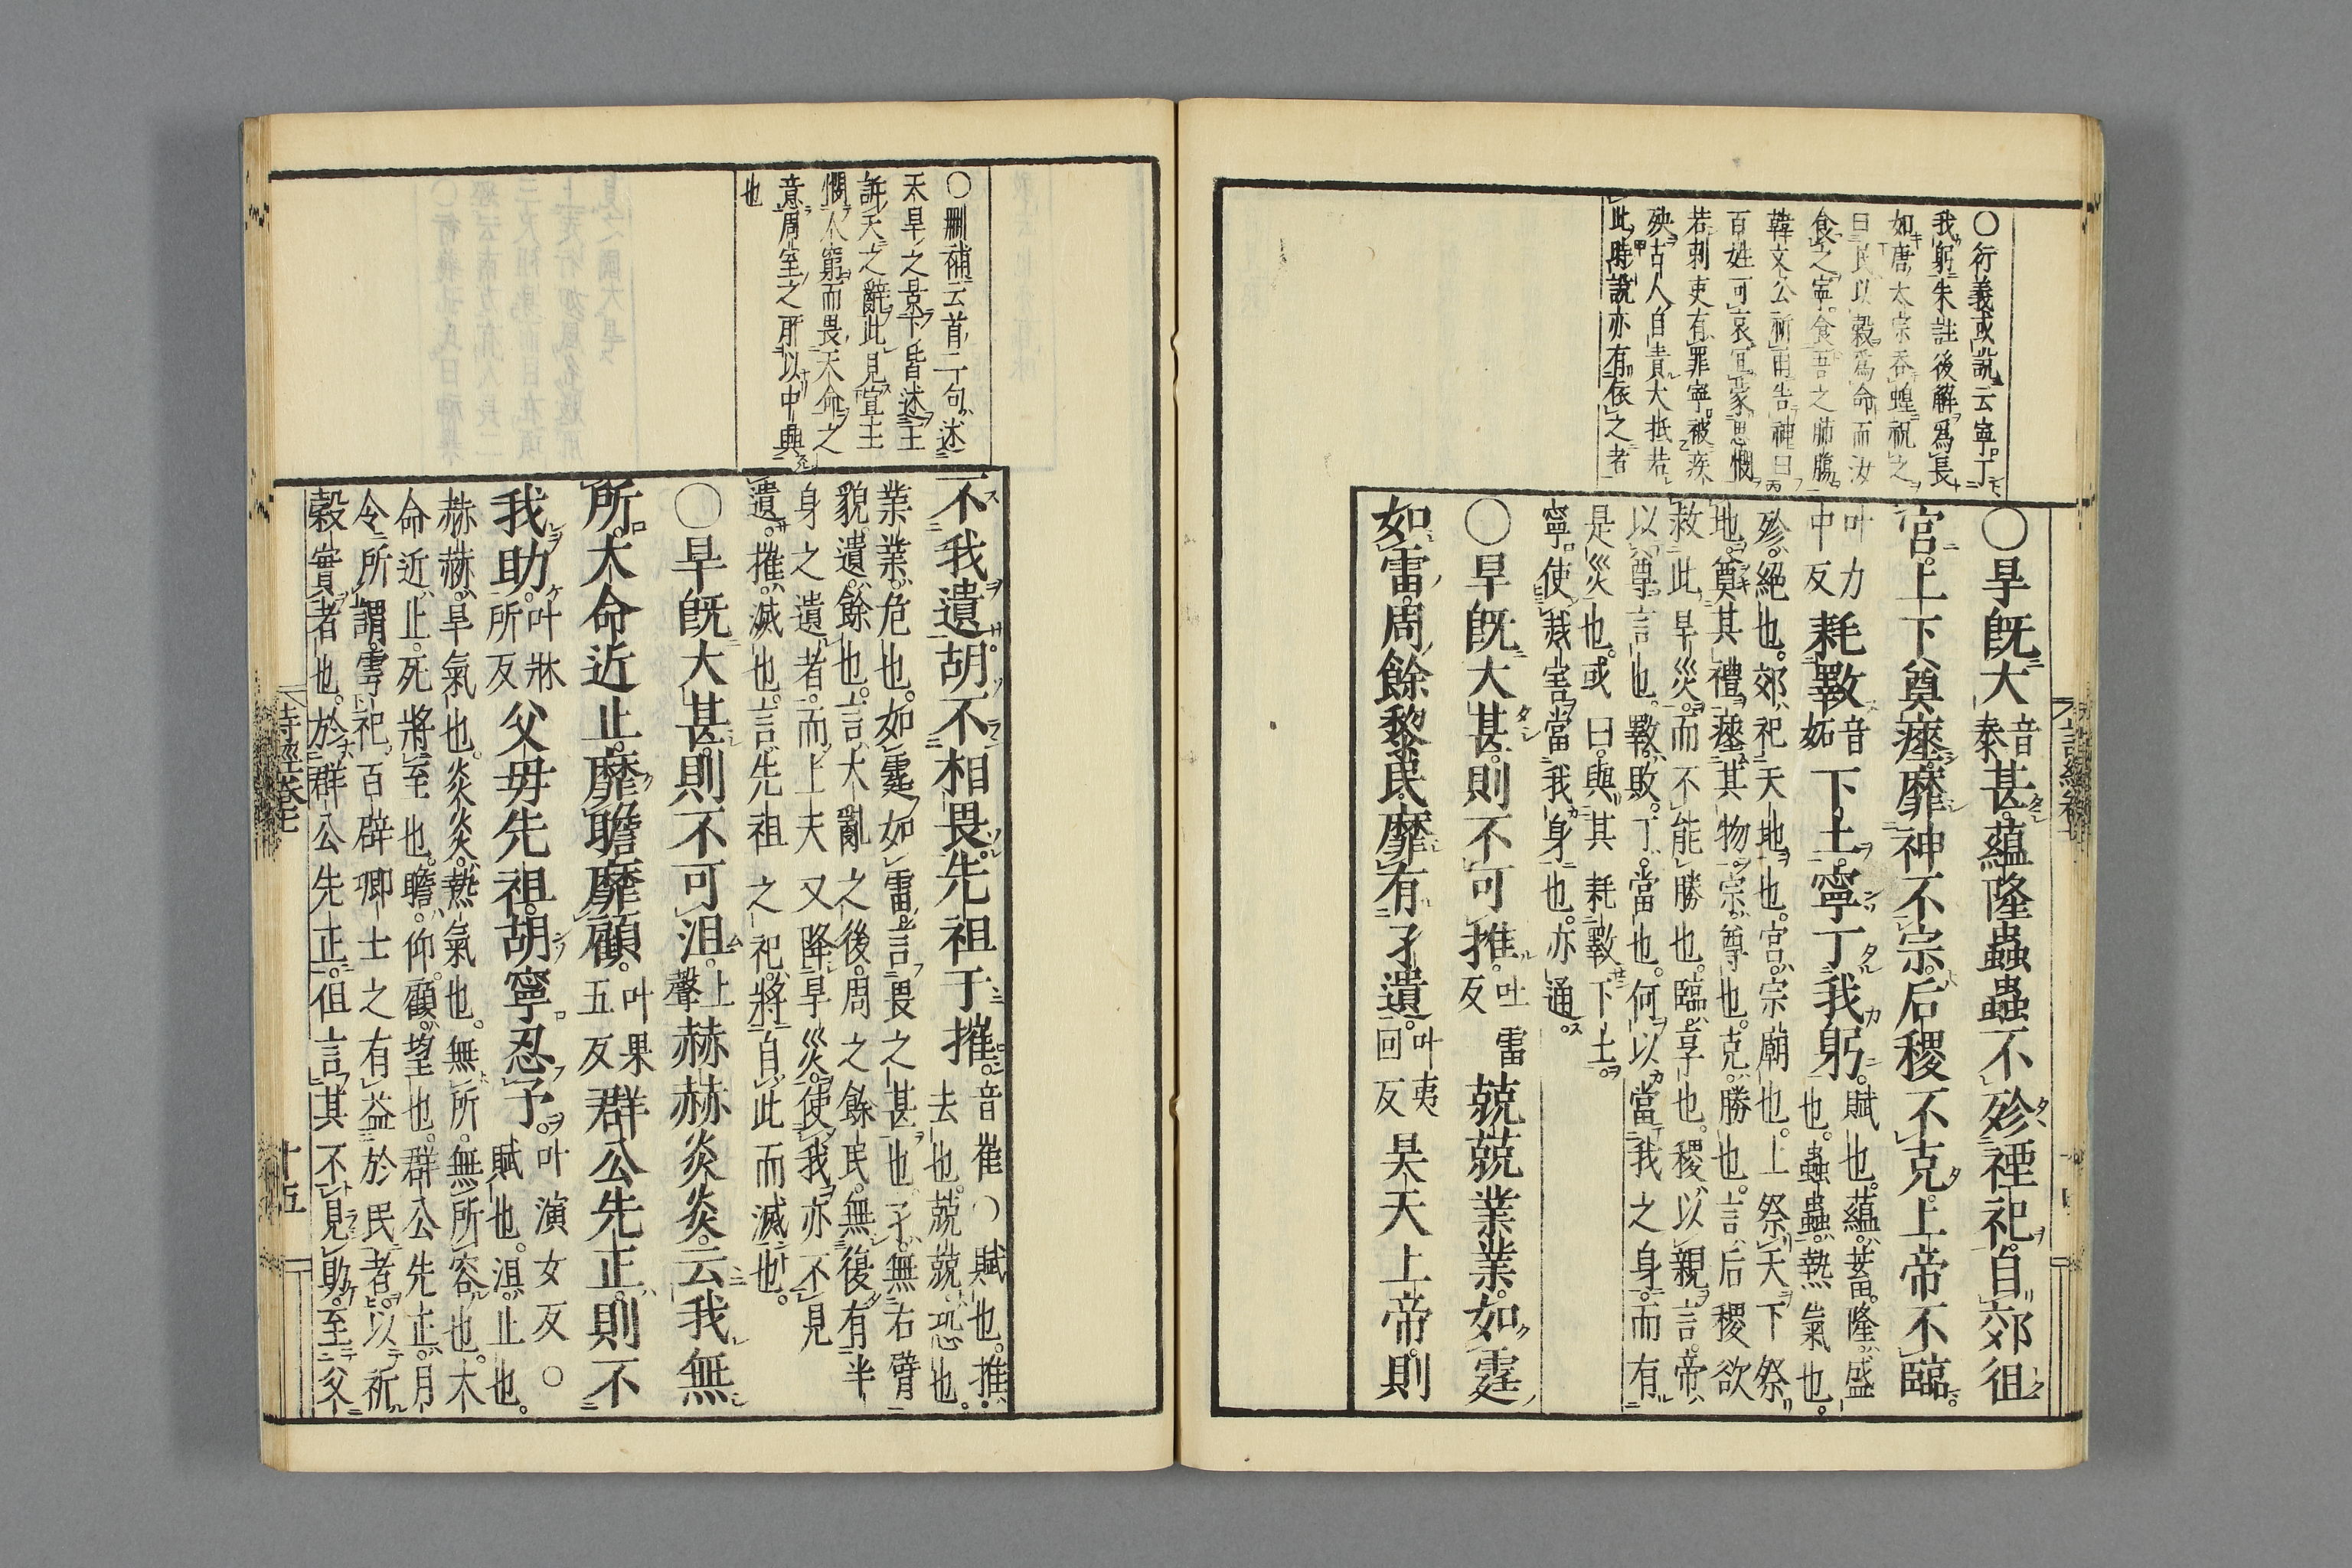 〇衍義或說云寧丁
我躬朱註後解爲長
如唐太宗呑蝗祝之
曰民以穀爲命而汝
食之寧食吾之肺膓
韓文公祈雨告神曰
百姓可哀冝蒙恩憫
若刺吏有罪寧被疾
殃古人自責大抵若
此時說亦有依之者
〇旱旣大音泰甚蘊隆蟲蟲不殄禋祀自郊徂
宮上下奠瘞靡神不宗后稷不克上帝不臨
叶力中反耗斁音妬下土寧丁我躬賦也蘊蓄隆盛也蟲蟲熱氣也
殄絕也郊祀天地也宮宗廟也上祭天下祭
地奠其禮瘞其物宗尊也克勝也言后稷欲
救此旱災而不能勝也臨享也稷以親言帝
以尊言也斁敗丁當也何以當我之身而有
是災也或曰與其耗斁下土
寧使烖害當我身也亦通
〇旱旣大甚則不可推吐雷反兢兢業業如霆
如雷周餘黎民靡有孑遺叶夷回反昊天上帝則
詩經卷七
〇刪補云首二句述
天旱之景下皆述王
訴天之辭此見宣王
憫人窮而畏天命之
意周室之所以中興
也
不我遺胡不相畏先祖于摧音崔〇賦也推去也兢兢恐也
業業危也如霆如雷言畏之甚也孑無右臂
貌遺餘也言大亂之後周之餘民無復有半
身之遺者而上天又降旱災使我亦不見
遺摧滅也言先祖之祀將自此而滅也
〇旱旣大甚則不可沮上聲赫赫炎炎云我無
所大命近止靡瞻靡顧叶果五反群公先正則不
我助叶牀所反父母先祖胡寧忍予叶演女反〇賦也沮止也
赫赫旱氣也炎炎熱氣也無所無所容也大
命近止死將至也瞻仰顧望也群公先正月
令所謂雩祀百辟卿士之有益於民者以祈
穀實者也於群公先正但言其不見助至父
詩經卷七
十五